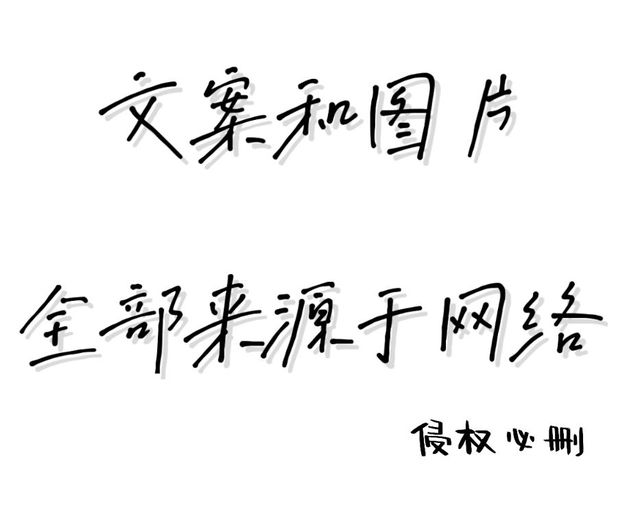 文案和图片
全部来源于网络
侵权必删